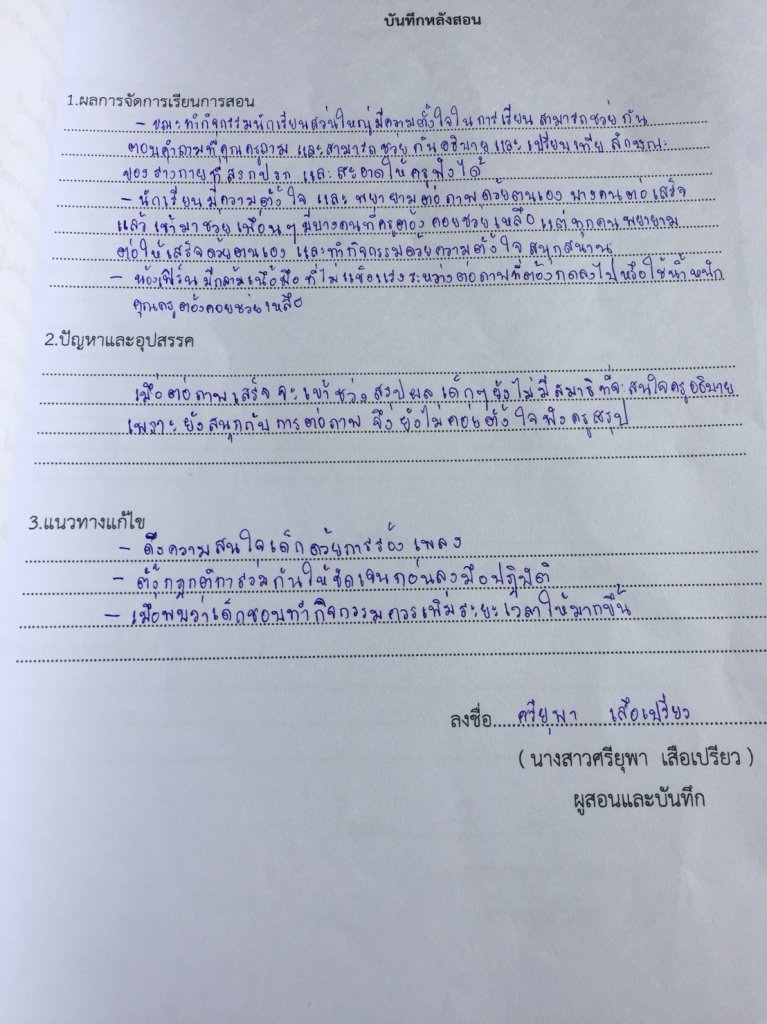 บันทึกหลังสอน
1.ผลการจัดการเรียนการสอน
- ขณะทำกิจกรรมนักเรียนส่วนใหญ่มีความตั้งใจในการเรียน สามารถช่วยกัน
ตอบคำถามที่คุณครูถาม และสามารถช่วยกันอธิบาย และเปรียบเทียบ ลักษณะ
ของร่างกายที่สกปรก และสะอาดให้ครูฟังได้
- นักเรียนมีความตั้งใจ และ พยายามต่อภาพด้วยตนเอง บางคนต่อเสร็จ
แล้ว เข้ามาช่วยเพื่อนๆ มีบางคนที่ครูต้องคอยช่วยเหลือ แต่ทุกคนพยายาม
ต่อให้เสร็จด้วยตนเอง และทำกิจกรรมด้วยความตั้งใจ สนุกสนาน
- น้องเฟิร์น มีกล้ามเนื้อมือที่ไม่แข็งแรง ระหว่างต่อภาพที่ต้องกดลงไปหรือใช้น้ำหนัก
คุณครูต้องคอยช่วยเหลือ
2.ปัญหาและอุปสรรค
เมื่อต่อภาพเสร็จ จะเข้าช่วงสรุปผล เด็กๆยังไม่มีสมาธิที่จะสนใจครูอธิบาย
เพราะยังสนุกกับการต่อภาพ จึงยังไม่ค่อยตั้งใจฟังครูสรุป
3.แนวทางแก้ไข
- ดึงความสนใจเด็กด้วยการร้องเพลง
- ตั้งกฎกติการ่วมกันให้ชัดเจนก่อนลงมือปฏิบัติ
- เมื่อพบว่าเด็กชอบทำกิจกรรมควรเพิ่มระยะเวลาให้มากขึ้น
ลงชื่อ ศรียุพา เสือเปรียว
( นางสาวศรียุพา เสือเปรียว )
ผู้สอนและบันทึก